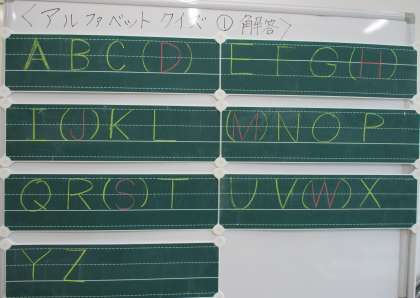 <アルファベットクイズ①解答>
A B C (D)
E F G (H)
I (J) K L
(M) N O P
Q R (S) T
U V (W) X
Y Z